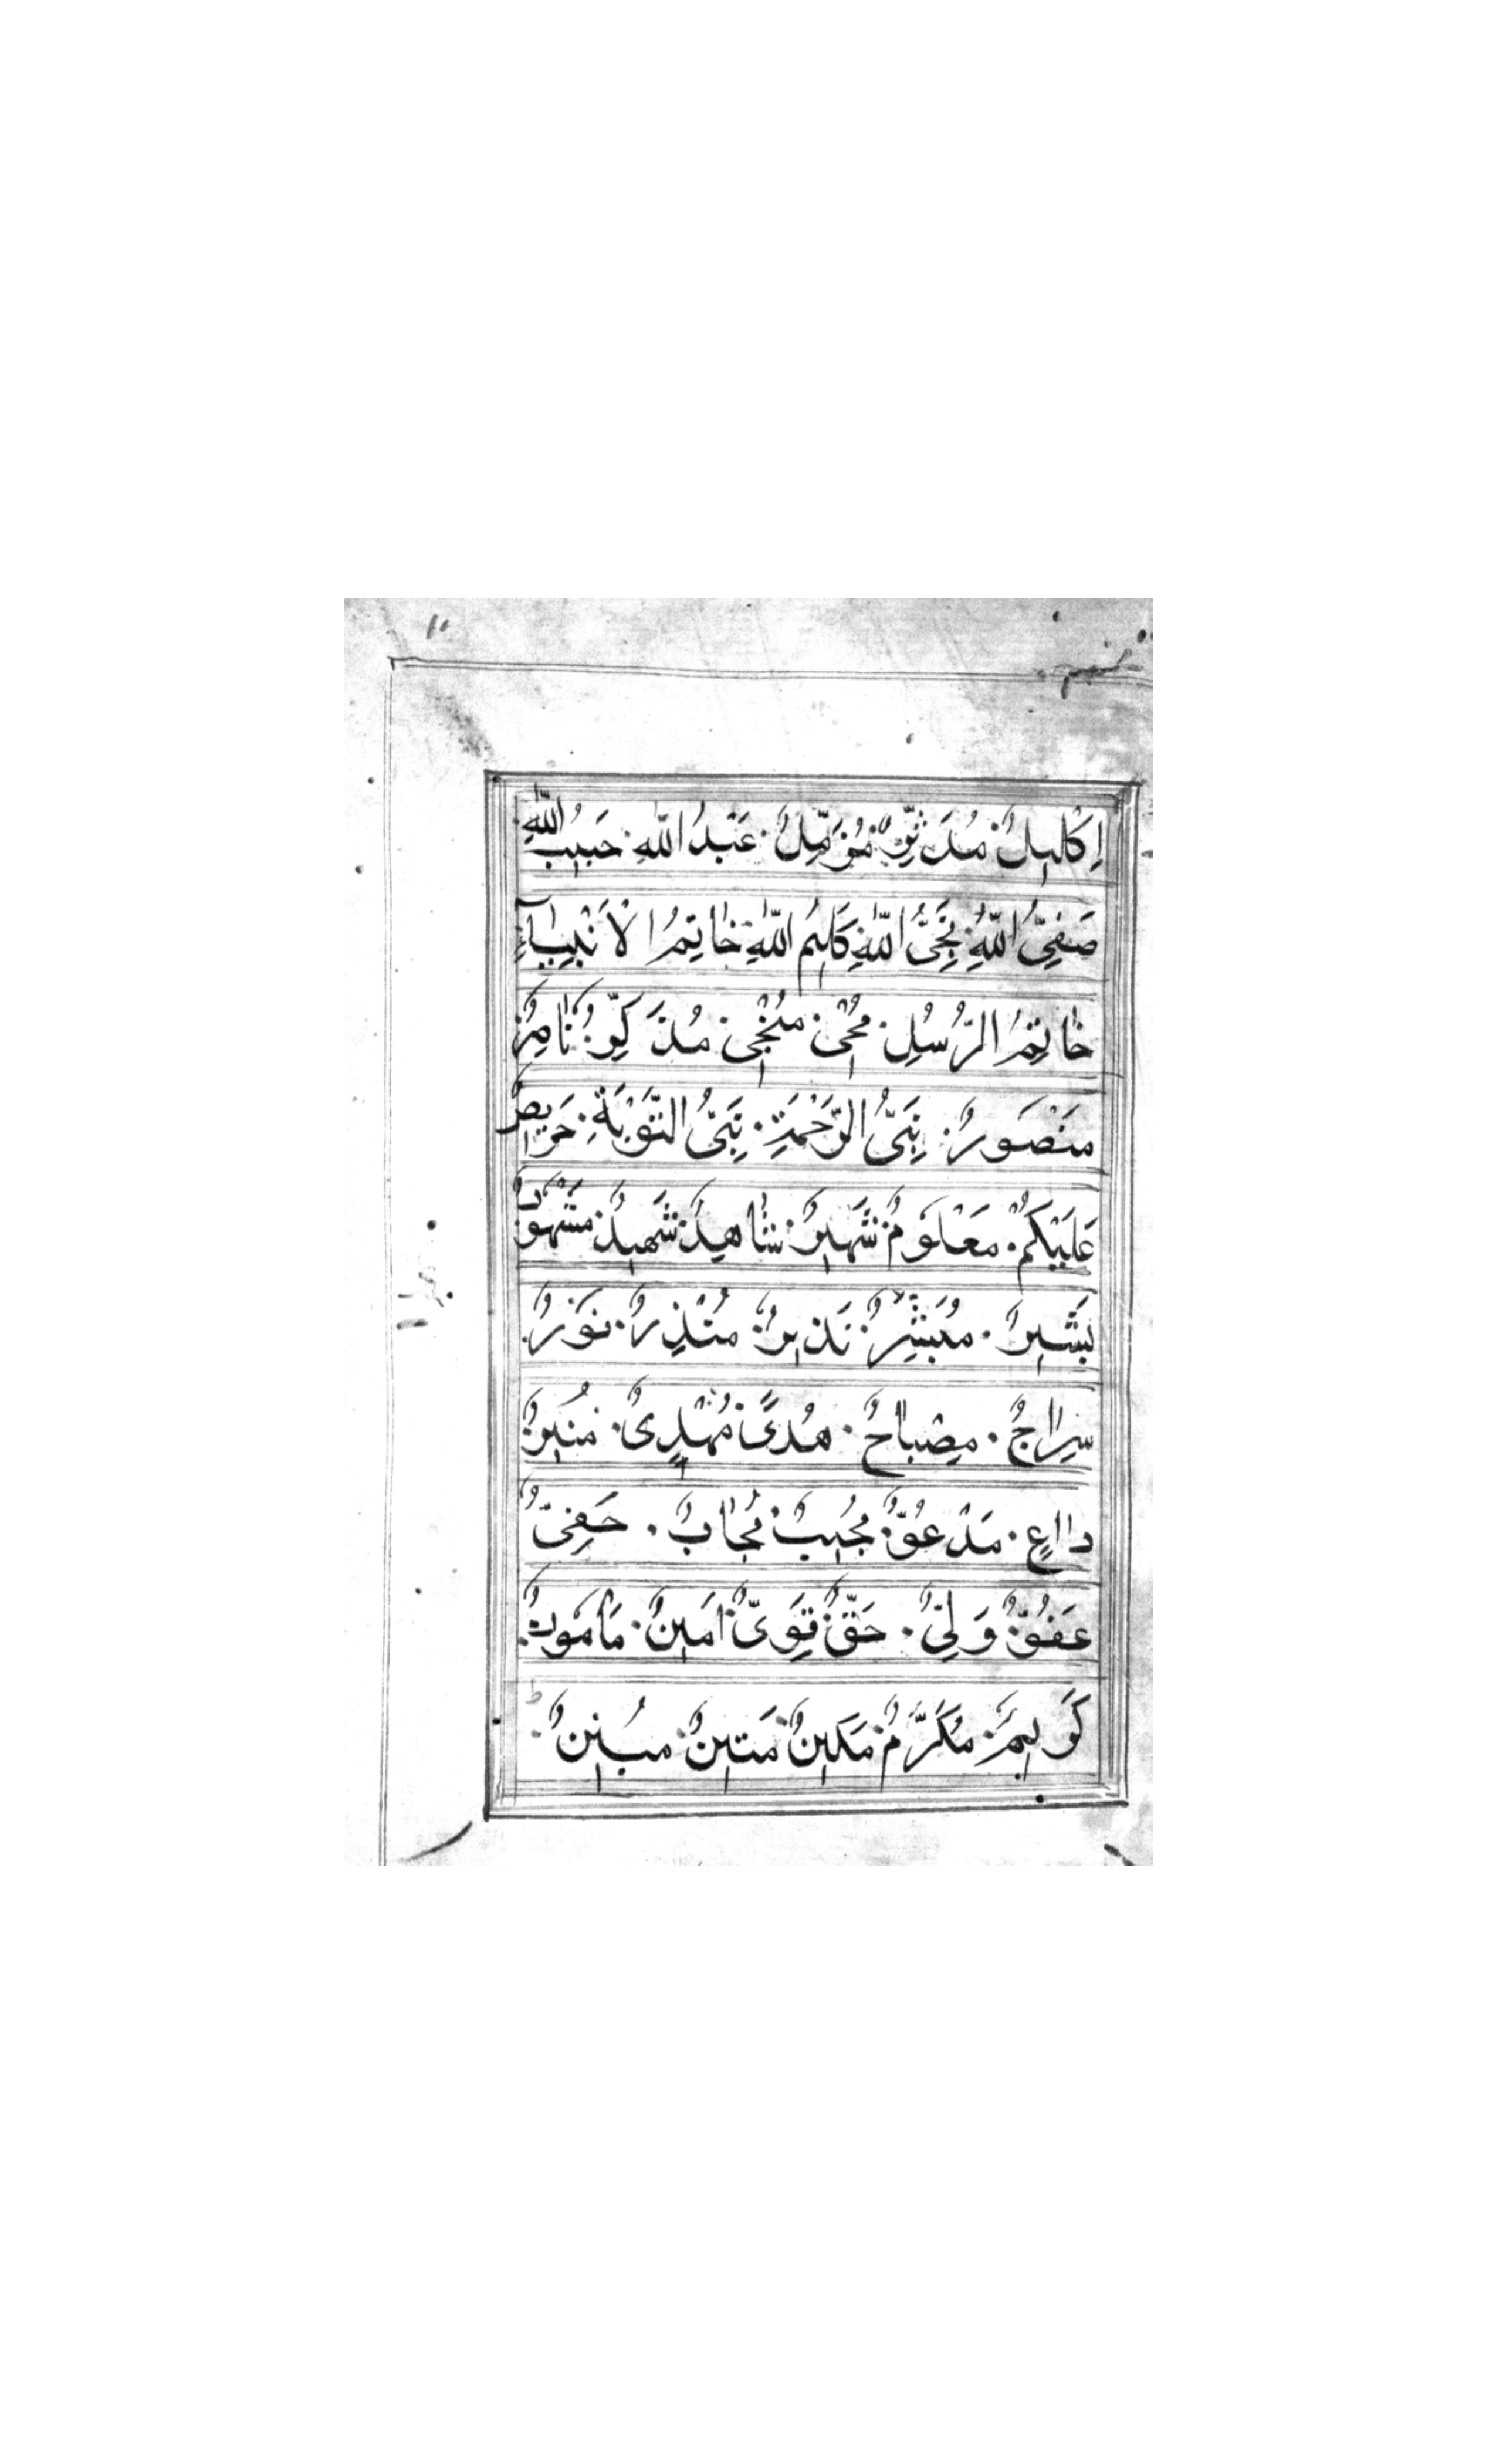 اِكْلِيلٌ مُدَثِّرٌ مُزَمِّلٌ عَبْدُ اللّٰهِ حَبِيبُ اللّٰهِ
صَفِيُّ اللّٰهِ نَجِيُّ اللّٰهِ كَلِيمُ اللّٰهِ خَاتِمُ الْاَنْبِيَآءِ
خَاتِمُ الرُّسُلِ مُحْيِى مُنْجِى مُذَكِّرٌ نَاصِرٌ
مَنْصُورٌ نَبِىُّ الرَّحْمَةِ نَبِىُّ التَّوْبَةِ حَرِيصٌ
عَلَيْكُمْ مَعْلُومٌ شَهِيرٌ شَاهِدٌ شَهِيدٌ مَشْهُودٌ
بَشِيرٌ مُبَشِّرٌ نَذِيرٌ مُنْذِرٌ نُورٌ
سِرَاجٌ مِصْبَاحٌ هُدًى مُهْدِىٌ مُنِيرٌ
دَاعٍ مَدْعُوٌّ مُجِيبٌ مُجَابٌ حَفِىٌّ
عَفُوٌّ وَلِىٌّ حَقٌّ قَوِىٌّ اَمِينٌ مَأْمُونٌ
كَرِيمٌ مُكَرَّمٌ مَكِينٌ مَتِينٌ مُبِينٌ